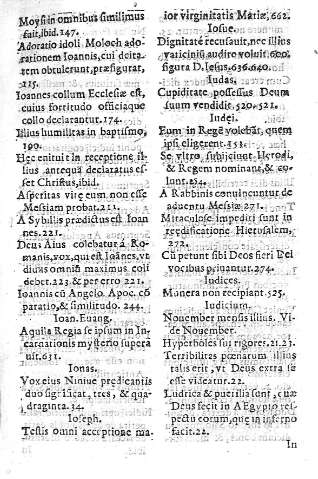 Moysi in omnibus similimus
fuit, ibid. 147.
Adoratio idoli Moloch ado-
rationem Ioannis, cui deita-
tem obtulerunt, præfigurat,
115.
Ioannes collum Ecclesiæ est,
cuius fortitudo officiaque
collo declarantur. 174.
Illius humilitas in baptismo,
190.
Hec enituit in receptione il-
lius antequā declaratus es-
set Christus, ibid.
Asperitas vitę eum non esse
Messiam probat. 211.
A Sybilis prædictus est Ioan
nes. 221.
Deus Aius colebatur à Ro-
manis, vox, qui est Ioānes, vt
dium omniū maximus coli
debet. 223. & per erro 221.
Ioannis cū Angelo Apoc. cō
paratio, & similitudo. 244.
Ioan. Euang.
Aquila Regia se ipsum in In-
carnationis mysterio supera
uit. 631.
Ionas.
Vox eius Niniuę prędicantis
duo significat, tres, & qua-
draginta. 34.
Ioseph.
Testis omni acceptione ma-
ior virginitatis Mariæ, 662.
Iosue.
Dignitatē recusauit, nec illius
vaticinia audire voluit. 600.
figura D. Iesus, 636. 640.
Iudas.
Cupiditate possessus Deum
suum vendidit. 520. 521.
Iudęi.
Eum in Regē volebāt, quem
ipsi eligerent. 351.
Se vltro subijciunt Herodi,
& Regem nominant, & co-
lunt. 154.
A Rabbinis conuincuntur de
aduentu Messiæ 271.
Miraculose impediti sunt in
reędificatione Hierusalem,
272.
Cū petunt sibi Deos fieri Dei
vocibus priuantur. 274.
Iudices.
Munera non recipiant. 525.
Iudicium.
Nouember mensis illius. Vi-
de Nouember.
Hypotheses sui rigoris. 21. 23.
Terribilitas pœnarum illius
talis erit, vt Deus extra se
esse videatur. 22.
Ludrica & puerilia sunt, cuæ
Deus fecit in AEgypto res-
pectu eorum, quę in inferno
faciet. 22.
In